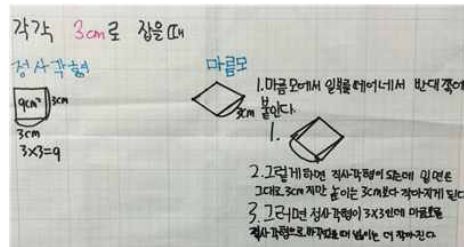 각각 3cm로 잡을때
정사각형
9cm² 3cm
3cm
3×3=9
마름모
3cm
1. 마름모에서 일부를 떼어내서 반대쪽에
붙인다.
1.
2. 그렇게하면 직사각형이 되는데 밑면은
그대로 3cm지만 높이는 3cm보다 작아지게 된다
3. 그러면 정사각형이 3×3인데 마름모를
직사각형으로 바꾸었을 때 넓이는 더 작아진다